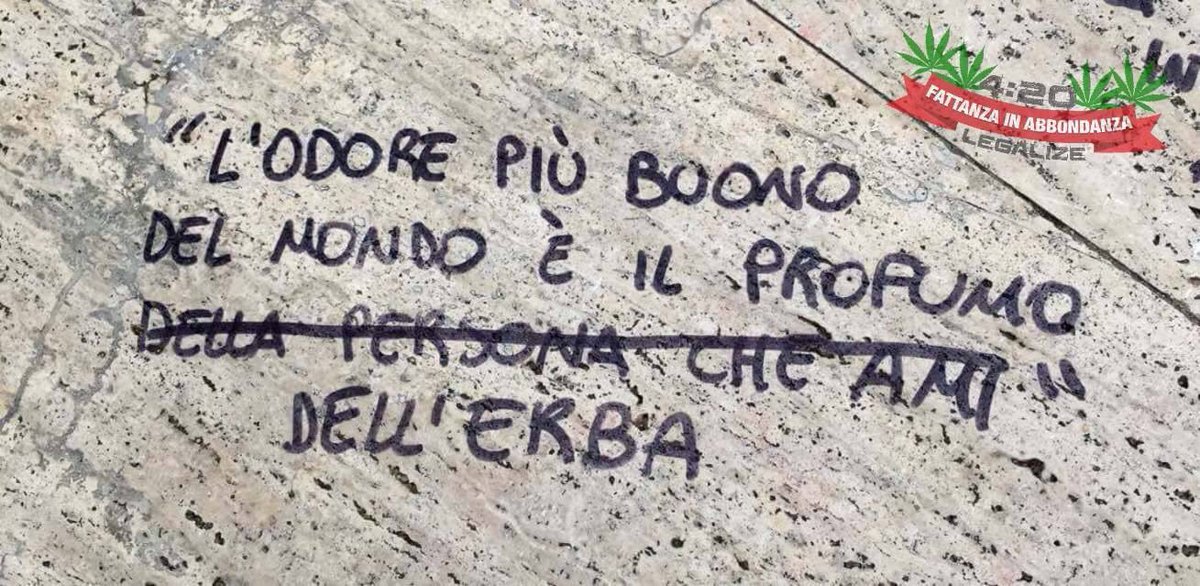 "L'ODORE PIÙ BUONO
DEL MONDO È IL PROFUMO
DELLA PERSONA CHE AMI"
DELL'ERBA
4:20
FATTANZA IN ABBONDANZA
LEGALIZE